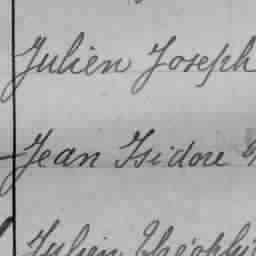 Julien Joseph
Jean Isidore
Julien Théophi